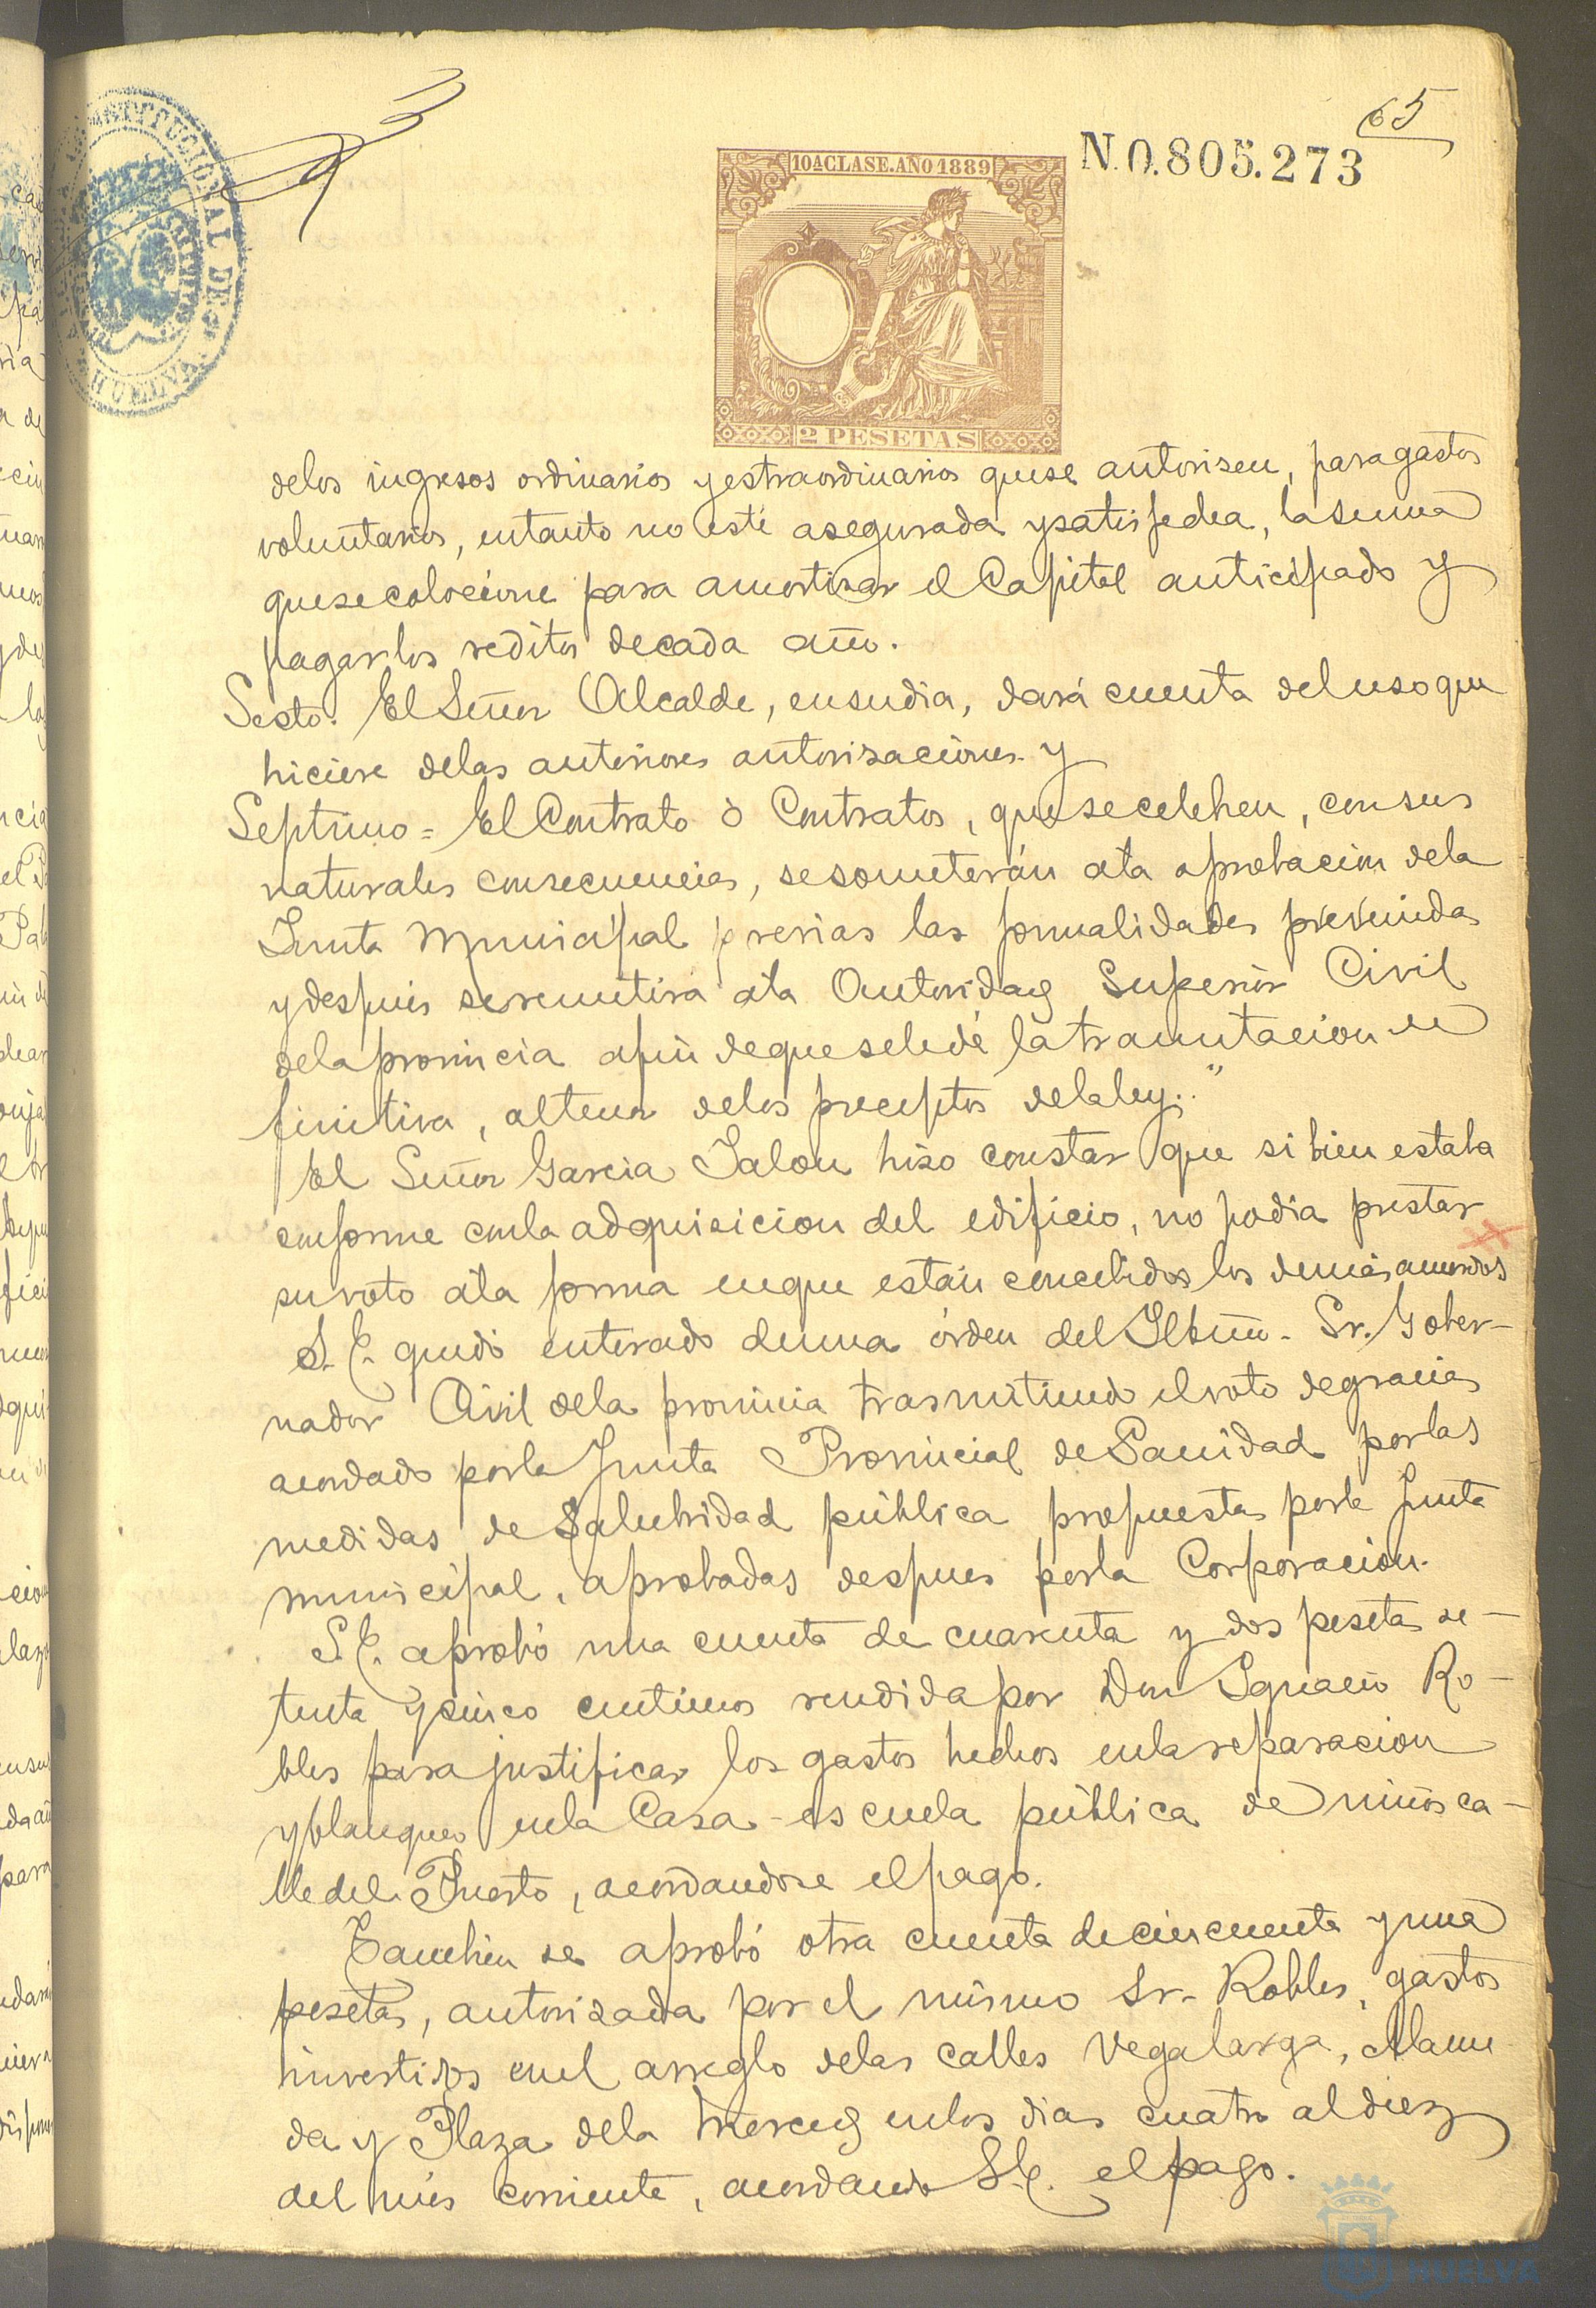 65
N.0.805.273
10ª CLASE. AÑO 1889
2 PESETAS
CONSTITUCIONAL DE
HUELVA
delos ingresos ordinarios y estraordinarios quese autorisen, para gastos
voluntarios, entanto no esté asegurada y satisfecha, la suma
que se coloccione para amortizar el Capital anticipado y
pagar los reditos de cada año.
Sesto. El Señor Alcalde, ensudia, dará cuenta del uso que
hiciere delas anteriores autorisaciones. y
Septimo = El Contrato ò Contratos, que se celebren, con sus
naturales consecuencias, sesometerán ála aprobacion dela
Junta Municipal previas las formalidades prevenidas
y despues se remitirá ála Autoridad Superior Civil
dela provincia afin deque sele dé la tramitacion de
finitiva, altenor delos preceptos dela ley."
El Señor Garcia Jalon hiso constar que si bien estaba
conforme conla adquisicion del edificio, no podia prestar
su voto ála forma enque están concebidos los demás acuerdos
S. E. quedó enterado deuna órden del Iltmo. Sr. Gober-
nador Civil dela provincia trasmitiendo el voto de gracias
acordado porla Junta Provincial de Sanidad porlas
medidas de Salubridad pública propuestas porla Junta
municipal, aprobadas despues porla Corporacion.
S. E. aprobó una cuenta de cuarenta y dos pesetas se-
tenta y cinco centimos rendida por Don Ignacio Ro-
bles para justificar los gastos hechos enla reparacion
y blanqueo enla Casa-escuela pública de niños ca-
lle del Puerto, acordandose el pago.
Tambien se aprobó otra cuenta de cincuenta y una
pesetas, autorizada por el mismo Sr. Robles, gastos
invertidos enel arreglo delas calles Vegalarga, Alame
da y Plaza dela Merced enlos dias cuatro al diez
del més corriente, acordando S. E. el pago.
HUELVA